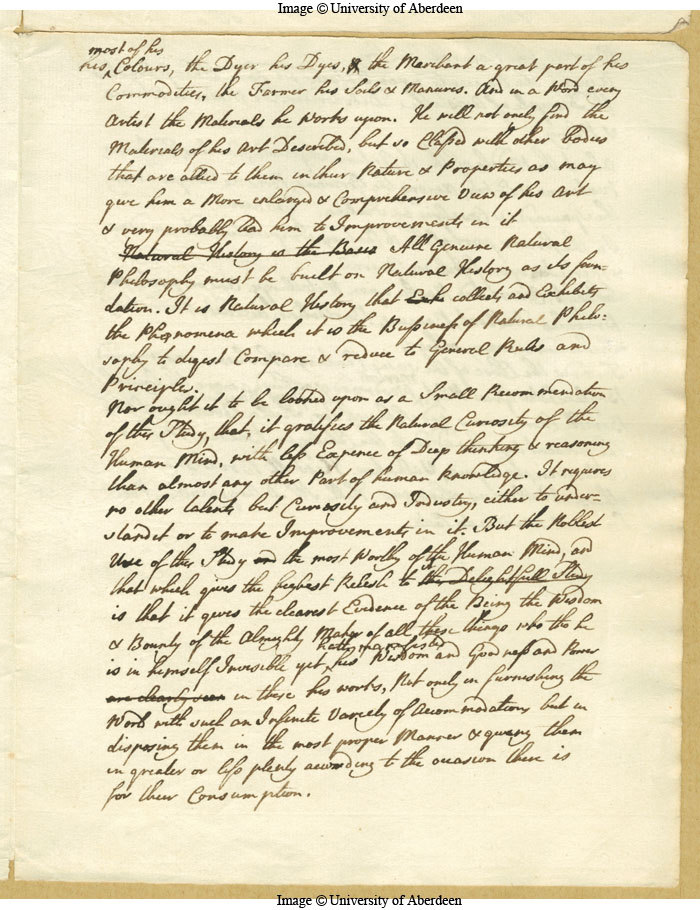 Image © University of Aberdeen
most of his
his Colours, the Dyer his Dyes, & the Merchant a great part of his
Commodities, the Farmer his Soils & Manures. And in a Word every
Artist the Materials he Works upon. He will not onely find the
Materials of his Art Described, but so Classed with other bodies
that are allied to them in their Nature & Properties as may
give him a More enlarged & Comprehensive View of his Art
& very probably lead him to Improvements in it
Natural History is the Basis All Genuine Natural
Philosophy must be built on Natural History as its foun-
dation. It is Natural History that collects and Exhibits
the Phænomena which it is the Bussiness of Natural Philo-
sophy to digest Compare & reduce to General Rules and
Principles.
Nor ought it to be looked upon as a Small Recommendation
of this Study, that, it gratifies the Natural Curiosity of the
Human Mind, with less Expence of Deep thinking & reasoning
than almost any other Part of human Knowledge. It requires
no other talents but Curiosity and Industry, either to under-
stand it or to make Improvements in it. But the Noblest
Use of this Study and the most Worthy of the Human Mind, and
that which gives the highest Relish to it this Delightfull Study
is that it gives the clearest Evidence of the Being the Wisdom
& Bounty of the Almighty Maker of all these things who tho he
hath manifested
is in himself Invisible yet his Wisdom and Goodness and Power
are clearly seen in these his works, Not only in furnishing the
World with such an Infinite Variety of Accommodations but in
disposing them in the most proper Manner & giving them
in greater or less plenty according to the occasion there is
for their Consumption.
Image © University of Aberdeen